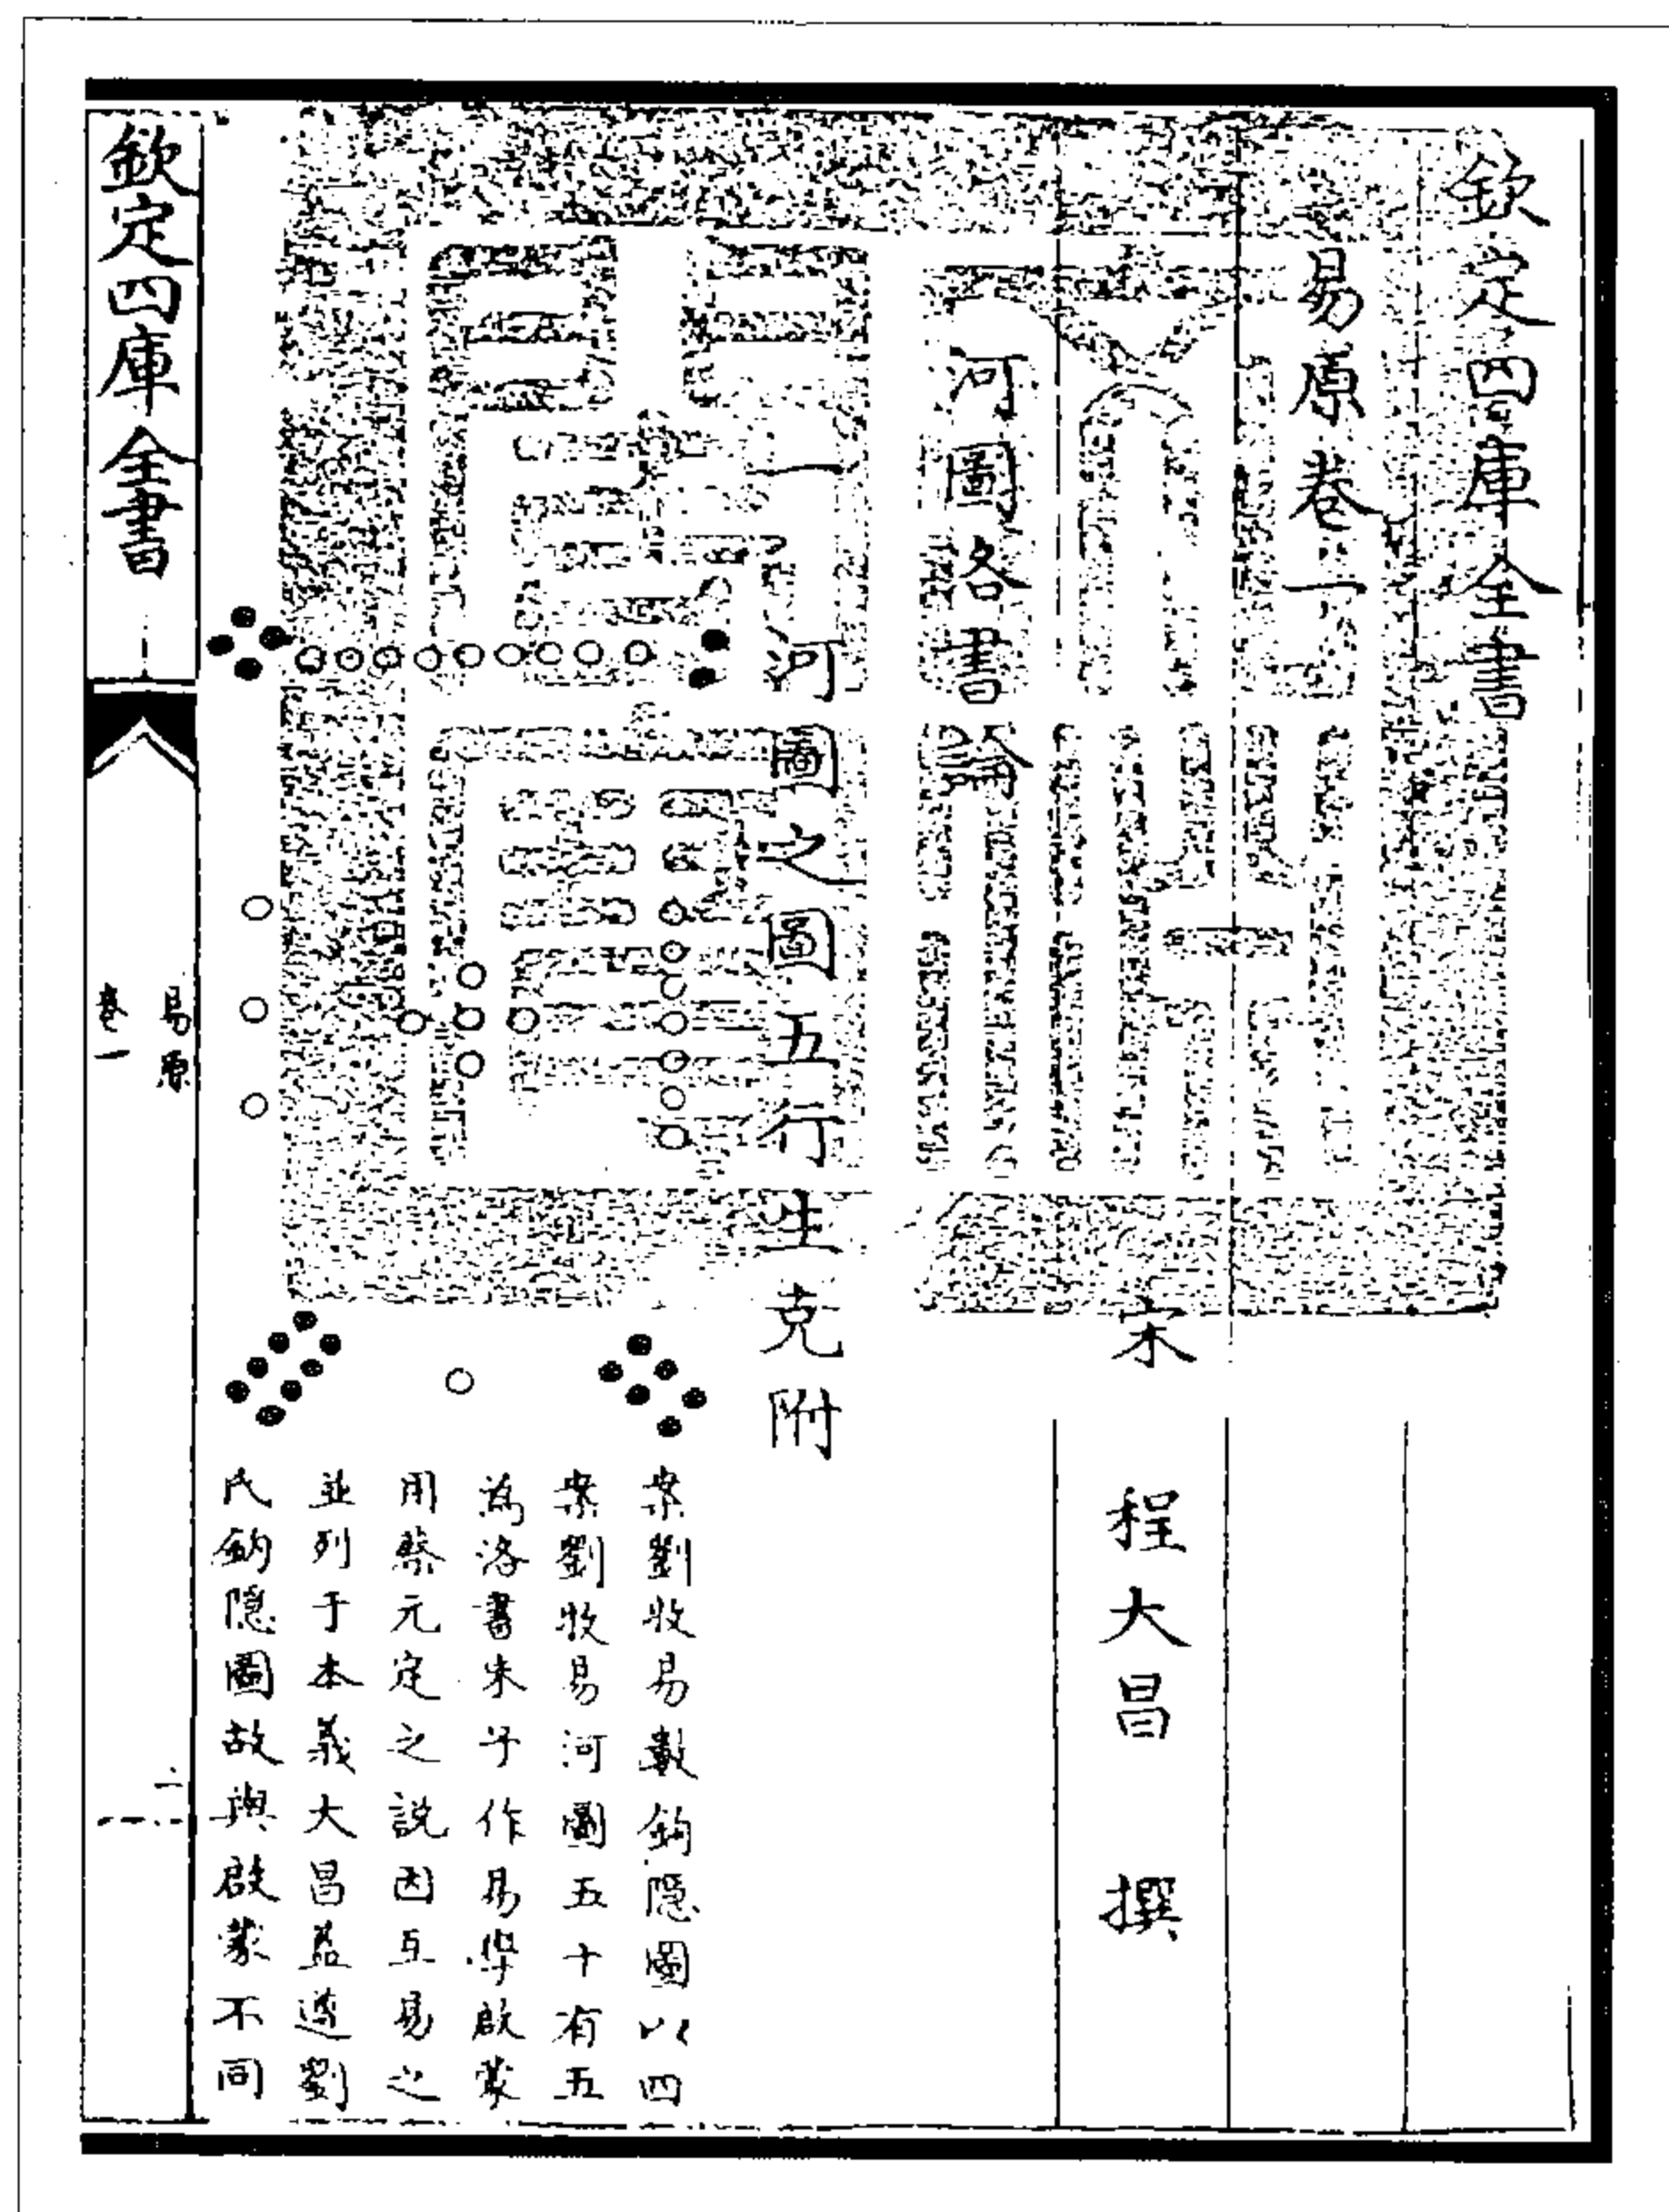 欽定四庫全書
易原卷一
宋 程大昌 撰
河圖洛書論
一河圖之圖五行生克附
案劉牧易數鈎隱圖以四
案劉牧易河圖五十有五
為洛書朱子作易學啟蒙
用蔡元定之說因互易之
並列于本義大昌蓋遵劉
氏鈎隱圖故與啟蒙不同
欽定四庫全書
易原
卷一